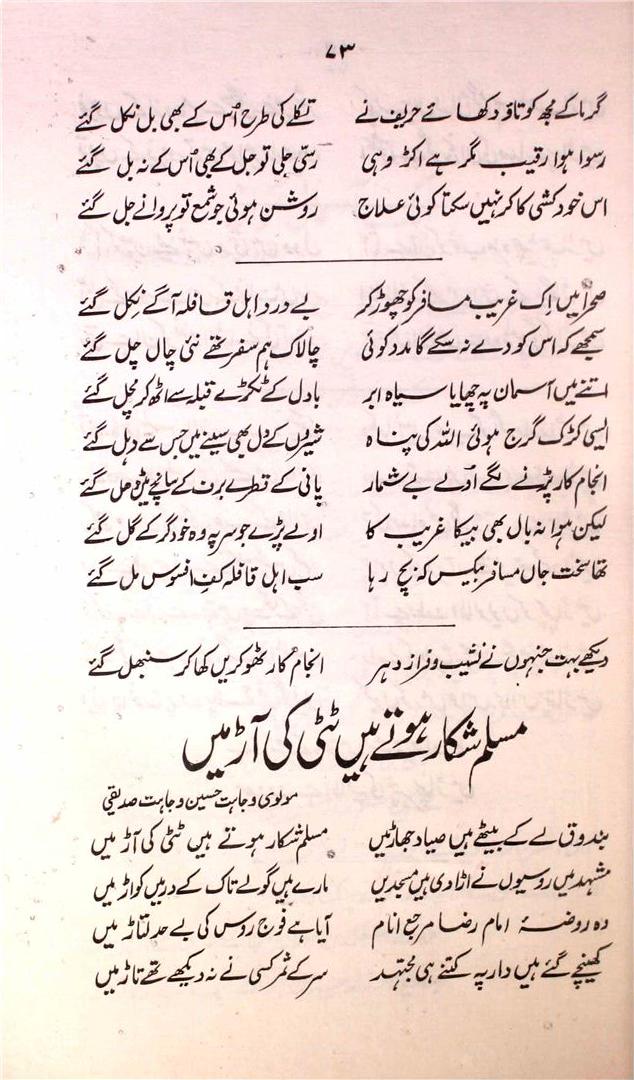 ۷۳
گرما کے مجھ کو تاؤ دکھائے حریف نے تکلے کی طرح اُس کے بھی بل نکل گئے
رسوا ہوا رقیب مگر ہے اکڑ وہی رسّی جلی تو جل کے بھی اُس کے نہ بل گئے
اس خودکشی کا کر نہیں سکتا کوئی علاج روشن ہوئی جو شمع تو پروانے جل گئے
صحرا میں اِک غریب مسافر کو چھوڑ کر بے درد اہل قافلہ آگے نکل گئے
سمجھے کہ اس کو دے نہ سکے گا مدد کوئی چالاک ہم سفر تھے نئی چال چل گئے
اتنے میں آسمان پہ چھایا سیاہ ابر بادل کے ٹکڑے قبلہ سے اٹھ کر مچل گئے
ایسی کڑک گرج ہوئی اللہ کی پناہ شیروں کے دل بھی سینے میں جس سے دہل گئے
انجام کار پڑنے لگے اولے بے شمار پانی کے قطرے برف کے سانچے میں ڈھل گئے
لیکن ہوا نہ بال بھی بیکا غریب کا اولے پڑے جو سر پہ وہ خود گر کے گل گئے
تھا سخت جاں مسافر بیکس کہ بچ رہا سب اہل قافلہ کفِ افسوس مل گئے
دیکھے بہت جنہوں نے نشیب و فراز دہر انجام کار ٹھوکریں کھا کر سنبھل گئے
مسلم شکار ہوتے ہیں ٹٹی کی آڑ میں
مولوی وجاہت حسین وجاہت صدیقی
بندوق لے کے بیٹھے ہیں صیاد جھاڑیں مسلم شکار ہوتے ہیں ٹٹی کی آڑ میں
مشہد میں روسیوں نے اڑا دی ہیں مسجدیں مارے ہیں گولے تاک کے در میں کواڑ میں
وہ روضۂ امام رضا مرجع انام آیا ہے فوج روس کی بے حد لتاڑ میں
کھینچے گئے ہیں دار پہ کتنے ہی مجتہد سر کے ثمر کسی نے نہ دیکھے تھے تاڑ میں